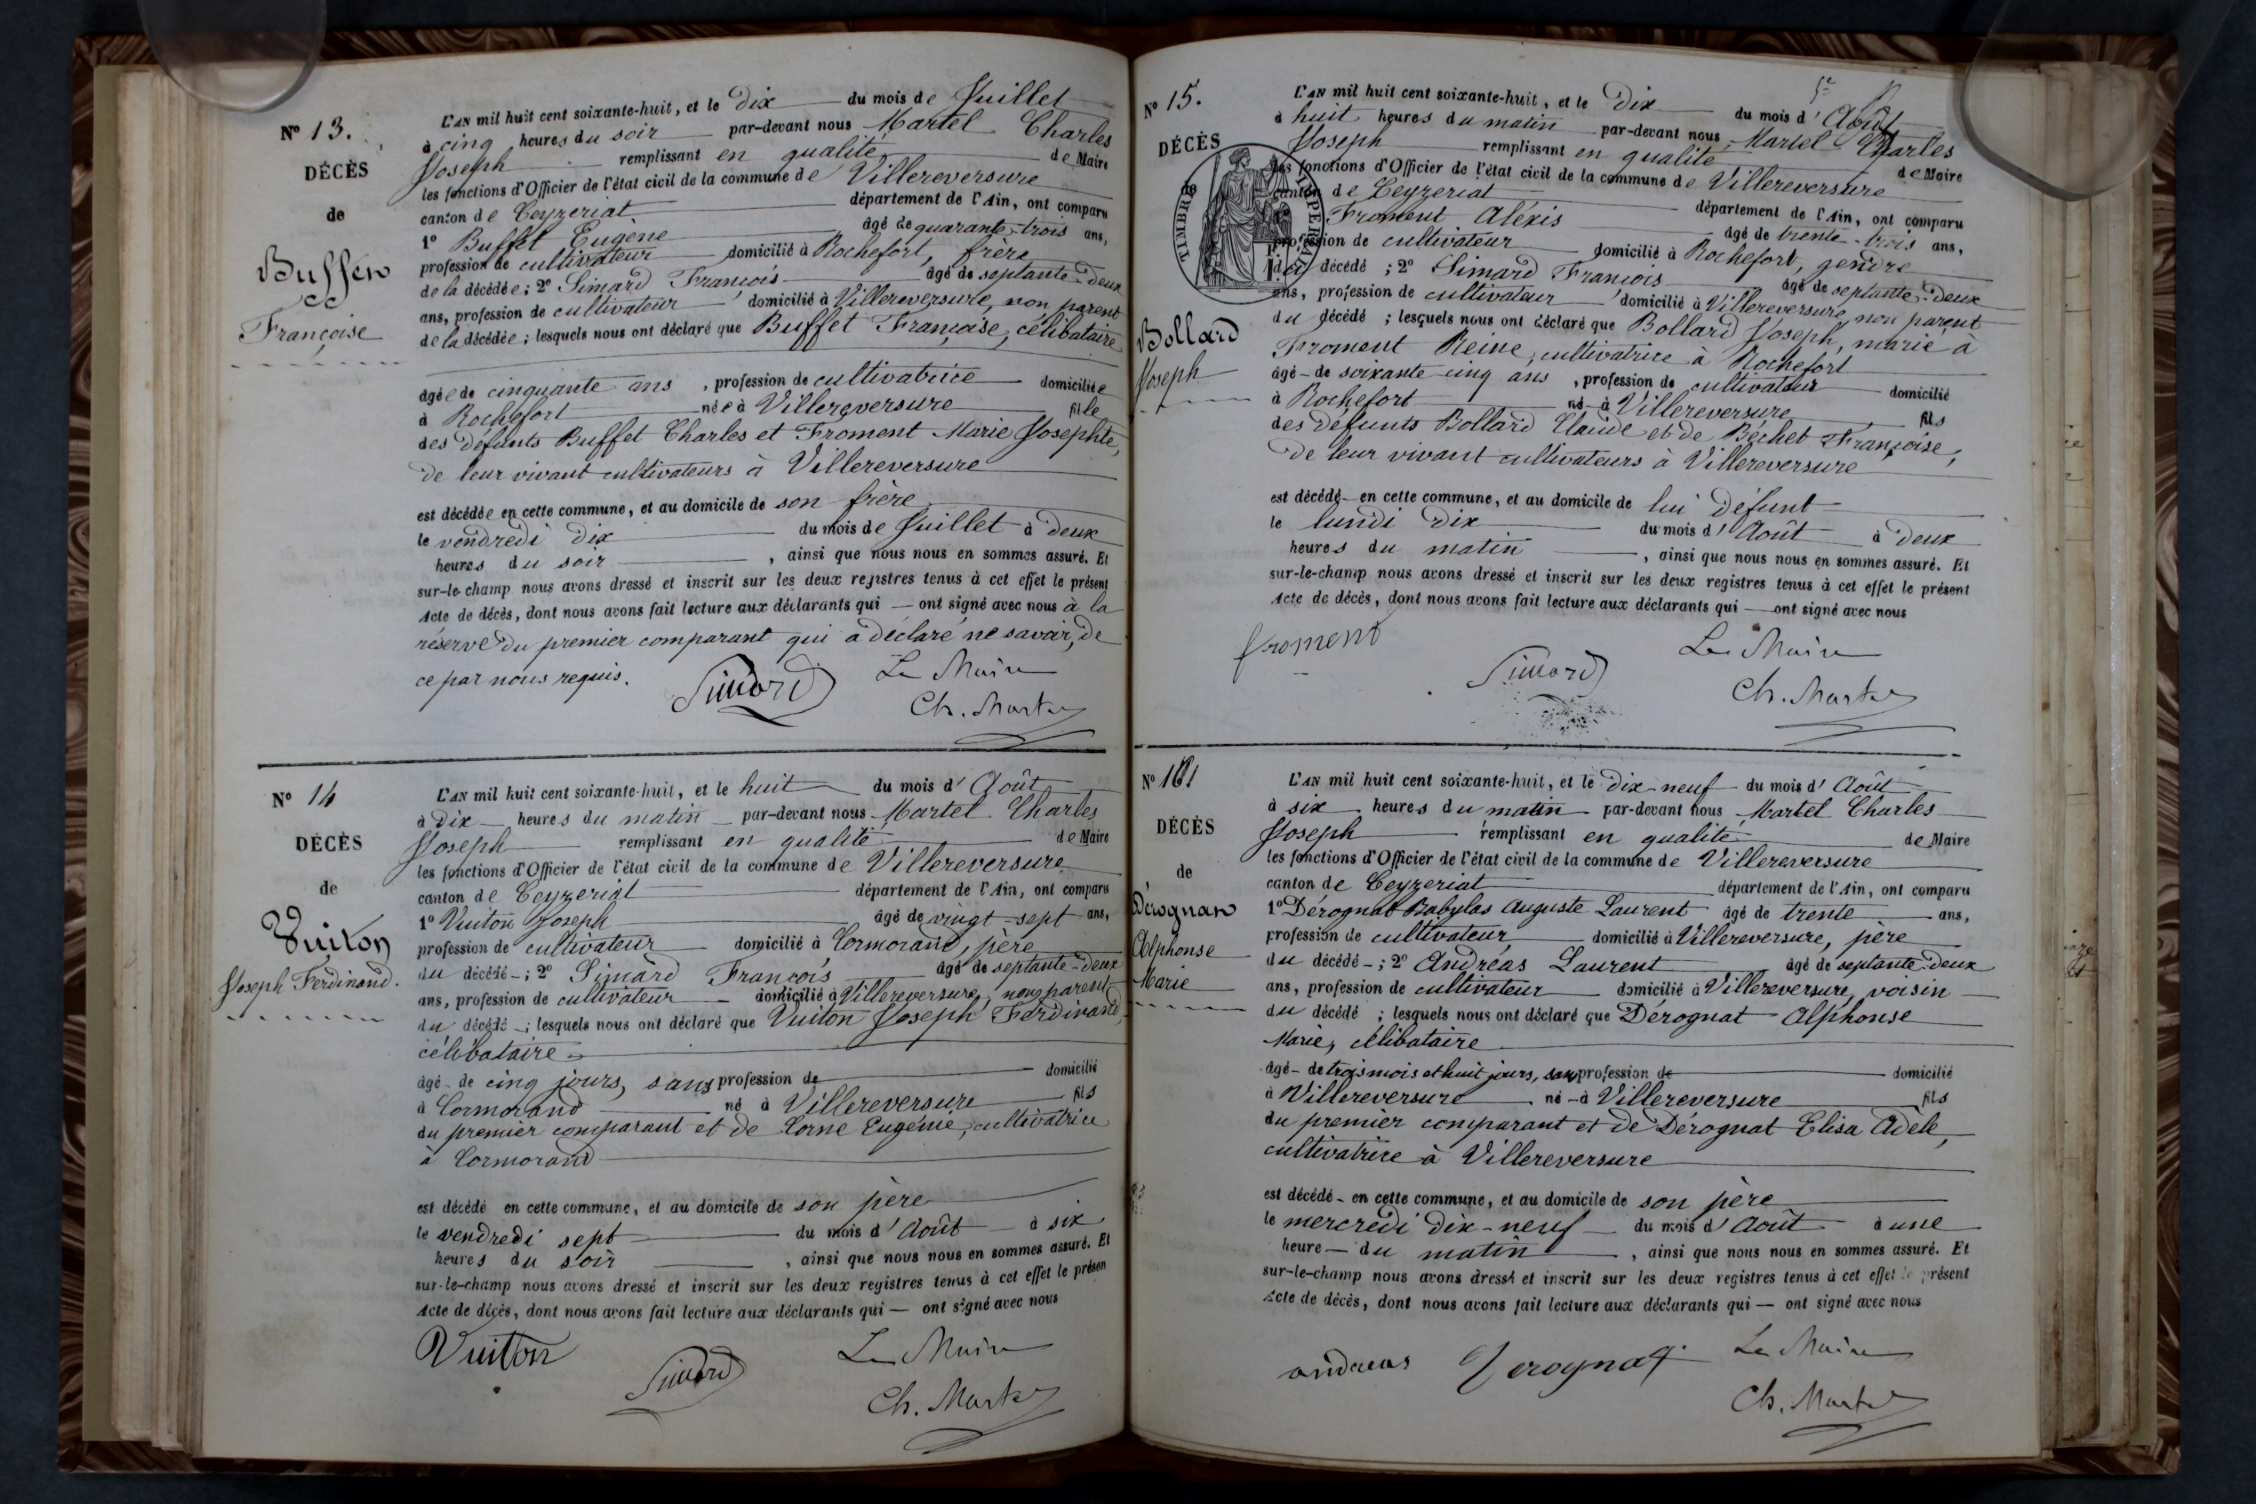 N° 13.
DÉCÈS
de
Buffet
Françoise
L'AN mil huit cent soixante-huit, et le Dix du mois de Juillet
à cinq heures du soir par-devant nous Martel Charles
Joseph remplissant en qualité de Maire
les fonctions d'Officier de l'état civil de la commune de Villereversure
canton de Ceyzeriat département de l'Ain, ont comparu
1° Buffet Eugène âgé de quarante-trois ans,
profession de cultivateur domicilié à Rochefort, frère
de la décédée ; 2° Simard François âgé de septante-deux
ans, profession de cultivateur domicilié à Villereversure, non parent
de la décédée ; lesquels nous ont déclaré que Buffet Françoise, célibataire
âgée de cinquante ans , profession de cultivatrice domiciliée
à Rochefort née à Villereversure fille
des défunts Buffet Charles et Froment Marie Josephte,
de leur vivant cultivateurs à Villereversure
est décédée en cette commune, et au domicile de son frère
le vendredi dix du mois de Juillet à deux
heures du soir , ainsi que nous nous en sommes assuré. Et
sur-le-champ nous avons dressé et inscrit sur les deux registres tenus à cet effet le présent
Acte de décès, dont nous avons fait lecture aux déclarants qui — ont signé avec nous à la
réserve du premier comparant qui a déclaré ne savoir, de
ce par nous requis.
Simard
Le Maire
Ch. Martel
N° 14
DÉCÈS
de
Vuiton
Joseph Ferdinand.
L'AN mil huit cent soixante-huit, et le huit du mois d'Août
à dix heures du matin par-devant nous Martel Charles
Joseph remplissant en qualité de Maire
les fonctions d'Officier de l'état civil de la commune de Villereversure
canton de Ceyzeriat département de l'Ain, ont comparu
1° Vuiton Joseph âgé de vingt-sept ans,
profession de cultivateur domicilié à Cormorand, père
du décédé ; 2° Simard François âgé de septante-deux
ans, profession de cultivateur domicilié à Villereversure, non parent
du décédé ; lesquels nous ont déclaré que Vuiton Joseph Ferdinand,
célibataire
âgé de cinq jours, sans profession de domicilié
à Cormorand né à Villereversure fils
du premier comparant et de Corne Eugénie, cultivatrice
à Cormorand
est décédé en cette commune, et au domicile de son père
le vendredi sept du mois d'Août à six
heures du soir , ainsi que nous nous en sommes assuré. Et
sur-le-champ nous avons dressé et inscrit sur les deux registres tenus à cet effet le présen
Acte de décès, dont nous avons fait lecture aux déclarants qui — ont signé avec nous
Vuiton
Simard
Le Maire
Ch. Martel
N° 15.
DÉCÈS
TIMBRE IMPERIAL
Bollard
Joseph
L'AN mil huit cent soixante-huit, et le Dix du mois d'Août
à huit heures du matin par-devant nous Martel Charles
Joseph remplissant en qualité de Maire
les fonctions d'Officier de l'état civil de la commune de Villereversure
canton de Ceyzeriat département de l'Ain, ont comparu
Froment Aléxis âgé de trente-trois ans,
profession de cultivateur domicilié à Rochefort, gendre
du décédé ; 2° Simard François âgé de septante-deux
ans, profession de cultivateur domicilié à Villereversure, non parent
du décédé ; lesquels nous ont déclaré que Bollard Joseph, marié à
Froment Reine, cultivatrice à Rochefort
âgé de soixante cinq ans , profession de cultivateur domicilié
à Rochefort né à Villereversure fils
des défunts Bollard Claude et de Béchet Françoise,
de leur vivant cultivateurs à Villereversure
est décédé en cette commune, et au domicile de lui défunt
le lundi dix du mois d'Août à deux
heures du matin , ainsi que nous nous en sommes assuré. Et
sur-le-champ nous avons dressé et inscrit sur les deux registres tenus à cet effet le présent
Acte de décès, dont nous avons fait lecture aux déclarants qui — ont signé avec nous
froment
Simard
Le Maire
Ch. Martel
N° 161
DÉCÈS
de
Dérognat
Alphonse
Marie
L'AN mil huit cent soixante-huit, et le Dix-neuf du mois d'Août
à six heures du matin par-devant nous Martel Charles
Joseph remplissant en qualité de Maire
les fonctions d'Officier de l'état civil de la commune de Villereversure
canton de Ceyzeriat département de l'Ain, ont comparu
1° Dérognat Babylas Auguste Laurent âgé de trente ans,
profession de cultivateur domicilié à Villereversure, père
du décédé ; 2° Andréas Laurent âgé de septante-deux
ans, profession de cultivateur domicilié à Villereversure, voisin
du décédé ; lesquels nous ont déclaré que Dérognat Alphonse
Marie, célibataire
âgé de trois mois et huit jours, sans profession de domicilié
à Villereversure né à Villereversure fils
du premier comparant et de Dérognat Elisa Adèle,
cultivatrice à Villereversure
est décédé en cette commune, et au domicile de son père
le mercredi dix-neuf du mois d'Août à une
heure du matin , ainsi que nous nous en sommes assuré. Et
sur-le-champ nous avons dressé et inscrit sur les deux registres tenus à cet effet le présent
Acte de décès, dont nous avons fait lecture aux déclarants qui — ont signé avec nous
andreas
Derognat
Le Maire
Ch. Martel